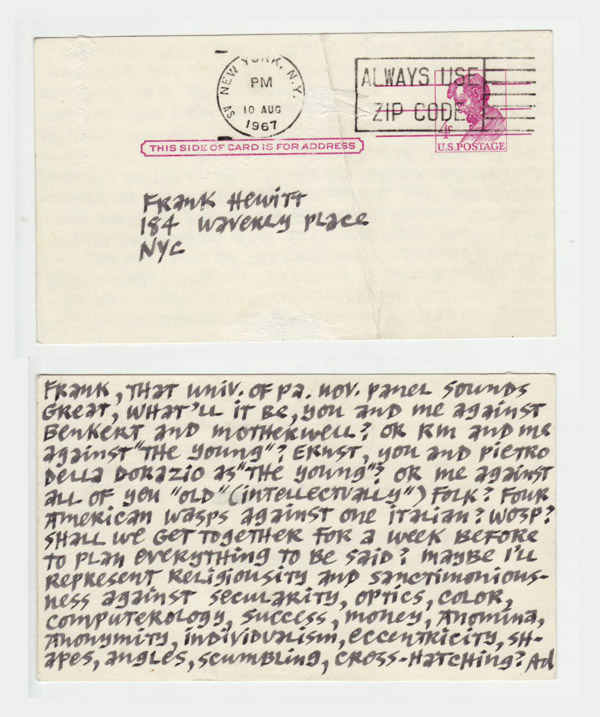 NEW YORK, N.Y.
PM
10 AUG
1967
ALWAYS USE
ZIP CODE
4¢
U.S. POSTAGE
THIS SIDE OF CARD IS FOR ADDRESS
FRANK HEWITT
184 WAVERLY PLACE
NYC
FRANK, THAT UNIV. OF PA. NOV. PANEL SOUNDS
GREAT, WHAT'LL IT BE, YOU AND ME AGAINST
BENKERT AND MOTHERWELL? OR RM AND ME
AGAINST "THE YOUNG"? ERNST, YOU AND PIETRO
DELLA DORAZIO AS "THE YOUNG"? OR ME AGAINST
ALL OF YOU "OLD" (INTELLECTUALLY") FOLK? FOUR
AMERICAN WASPS AGAINST ONE ITALIAN? WOSP?
SHALL WE GET TOGETHER FOR A WEEK BEFORE
TO PLAN EVERYTHING TO BE SAID? MAYBE I'LL
REPRESENT RELIGIOUSITY AND SANCTIMONIOUS-
NESS AGAINST SECULARITY, OPTICS, COLOR,
COMPUTEROLOGY, SUCCESS, MONEY, ANOMINA,
ANONYMITY, INDIVIDUALISM, ECCENTRICITY, SH-
APES, ANGLES, SCUMBLING, CROSS-HATCHING? Ad